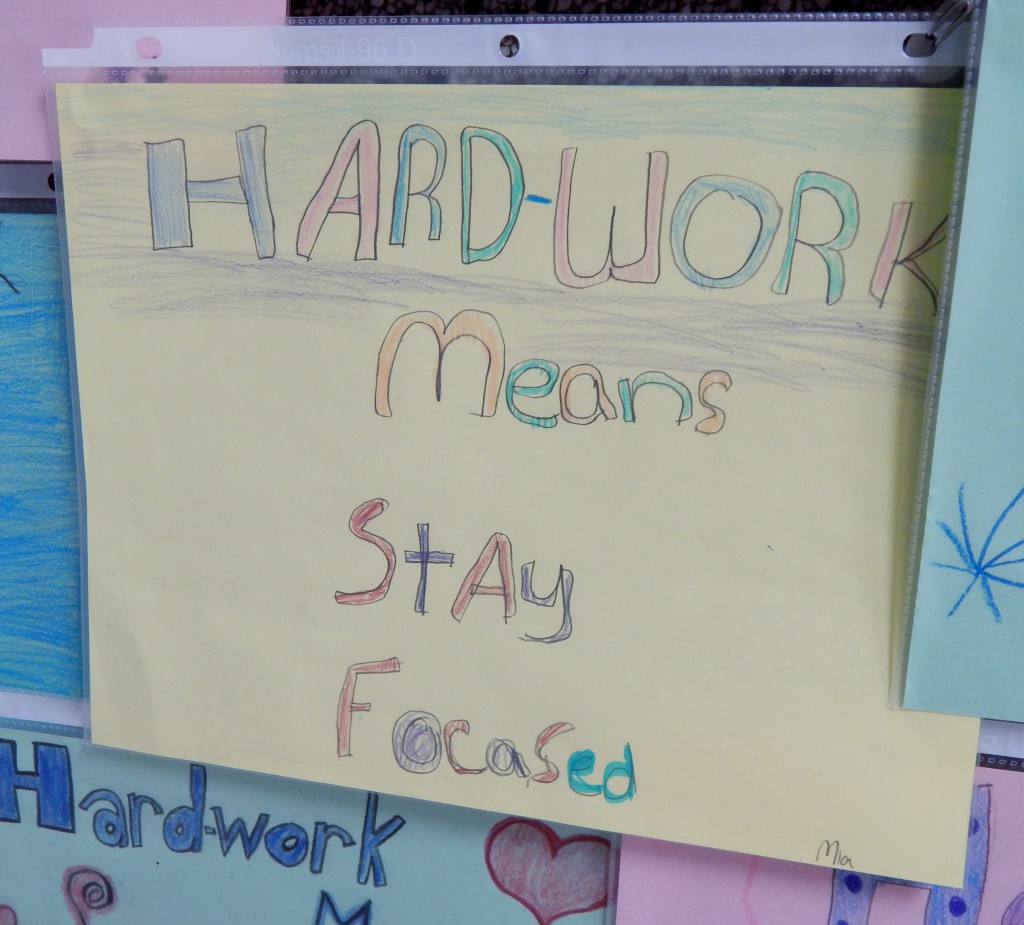 Samsill-96 D
HARD-WORK
Means
StAy
Focased
Mia
Hard-work